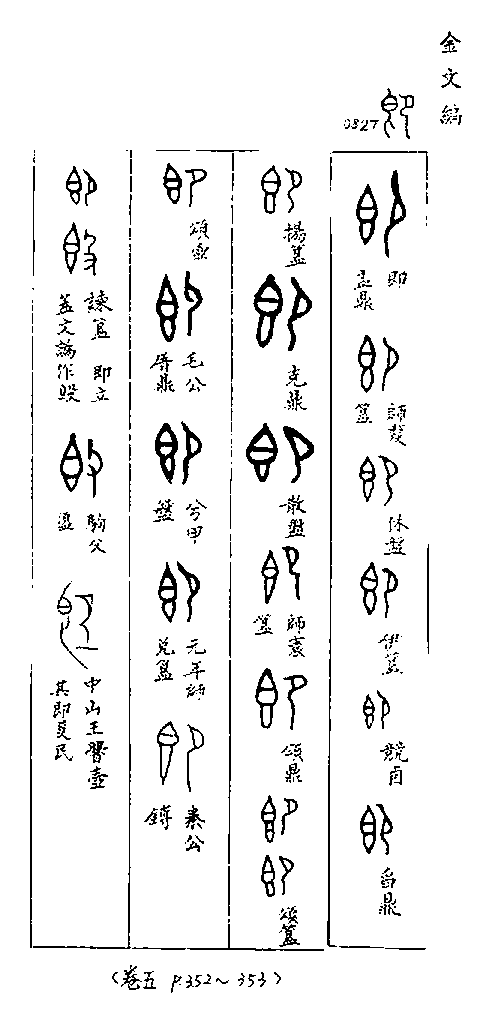 金文編
0827
即
即 盂鼎
師𩛥簋
休盤
伊簋
競卣
舀鼎
揚簋
克鼎
散盤
師㝨簋
頌鼎
頌簋
頌壺
毛公㫍鼎
兮甲盤
元年師兌簋
秦公鎛
諫簋 即立
蓋文譌作𣪘
駒父盨
中山王𰯼壺
其即旻民
(卷五 P.352~353)